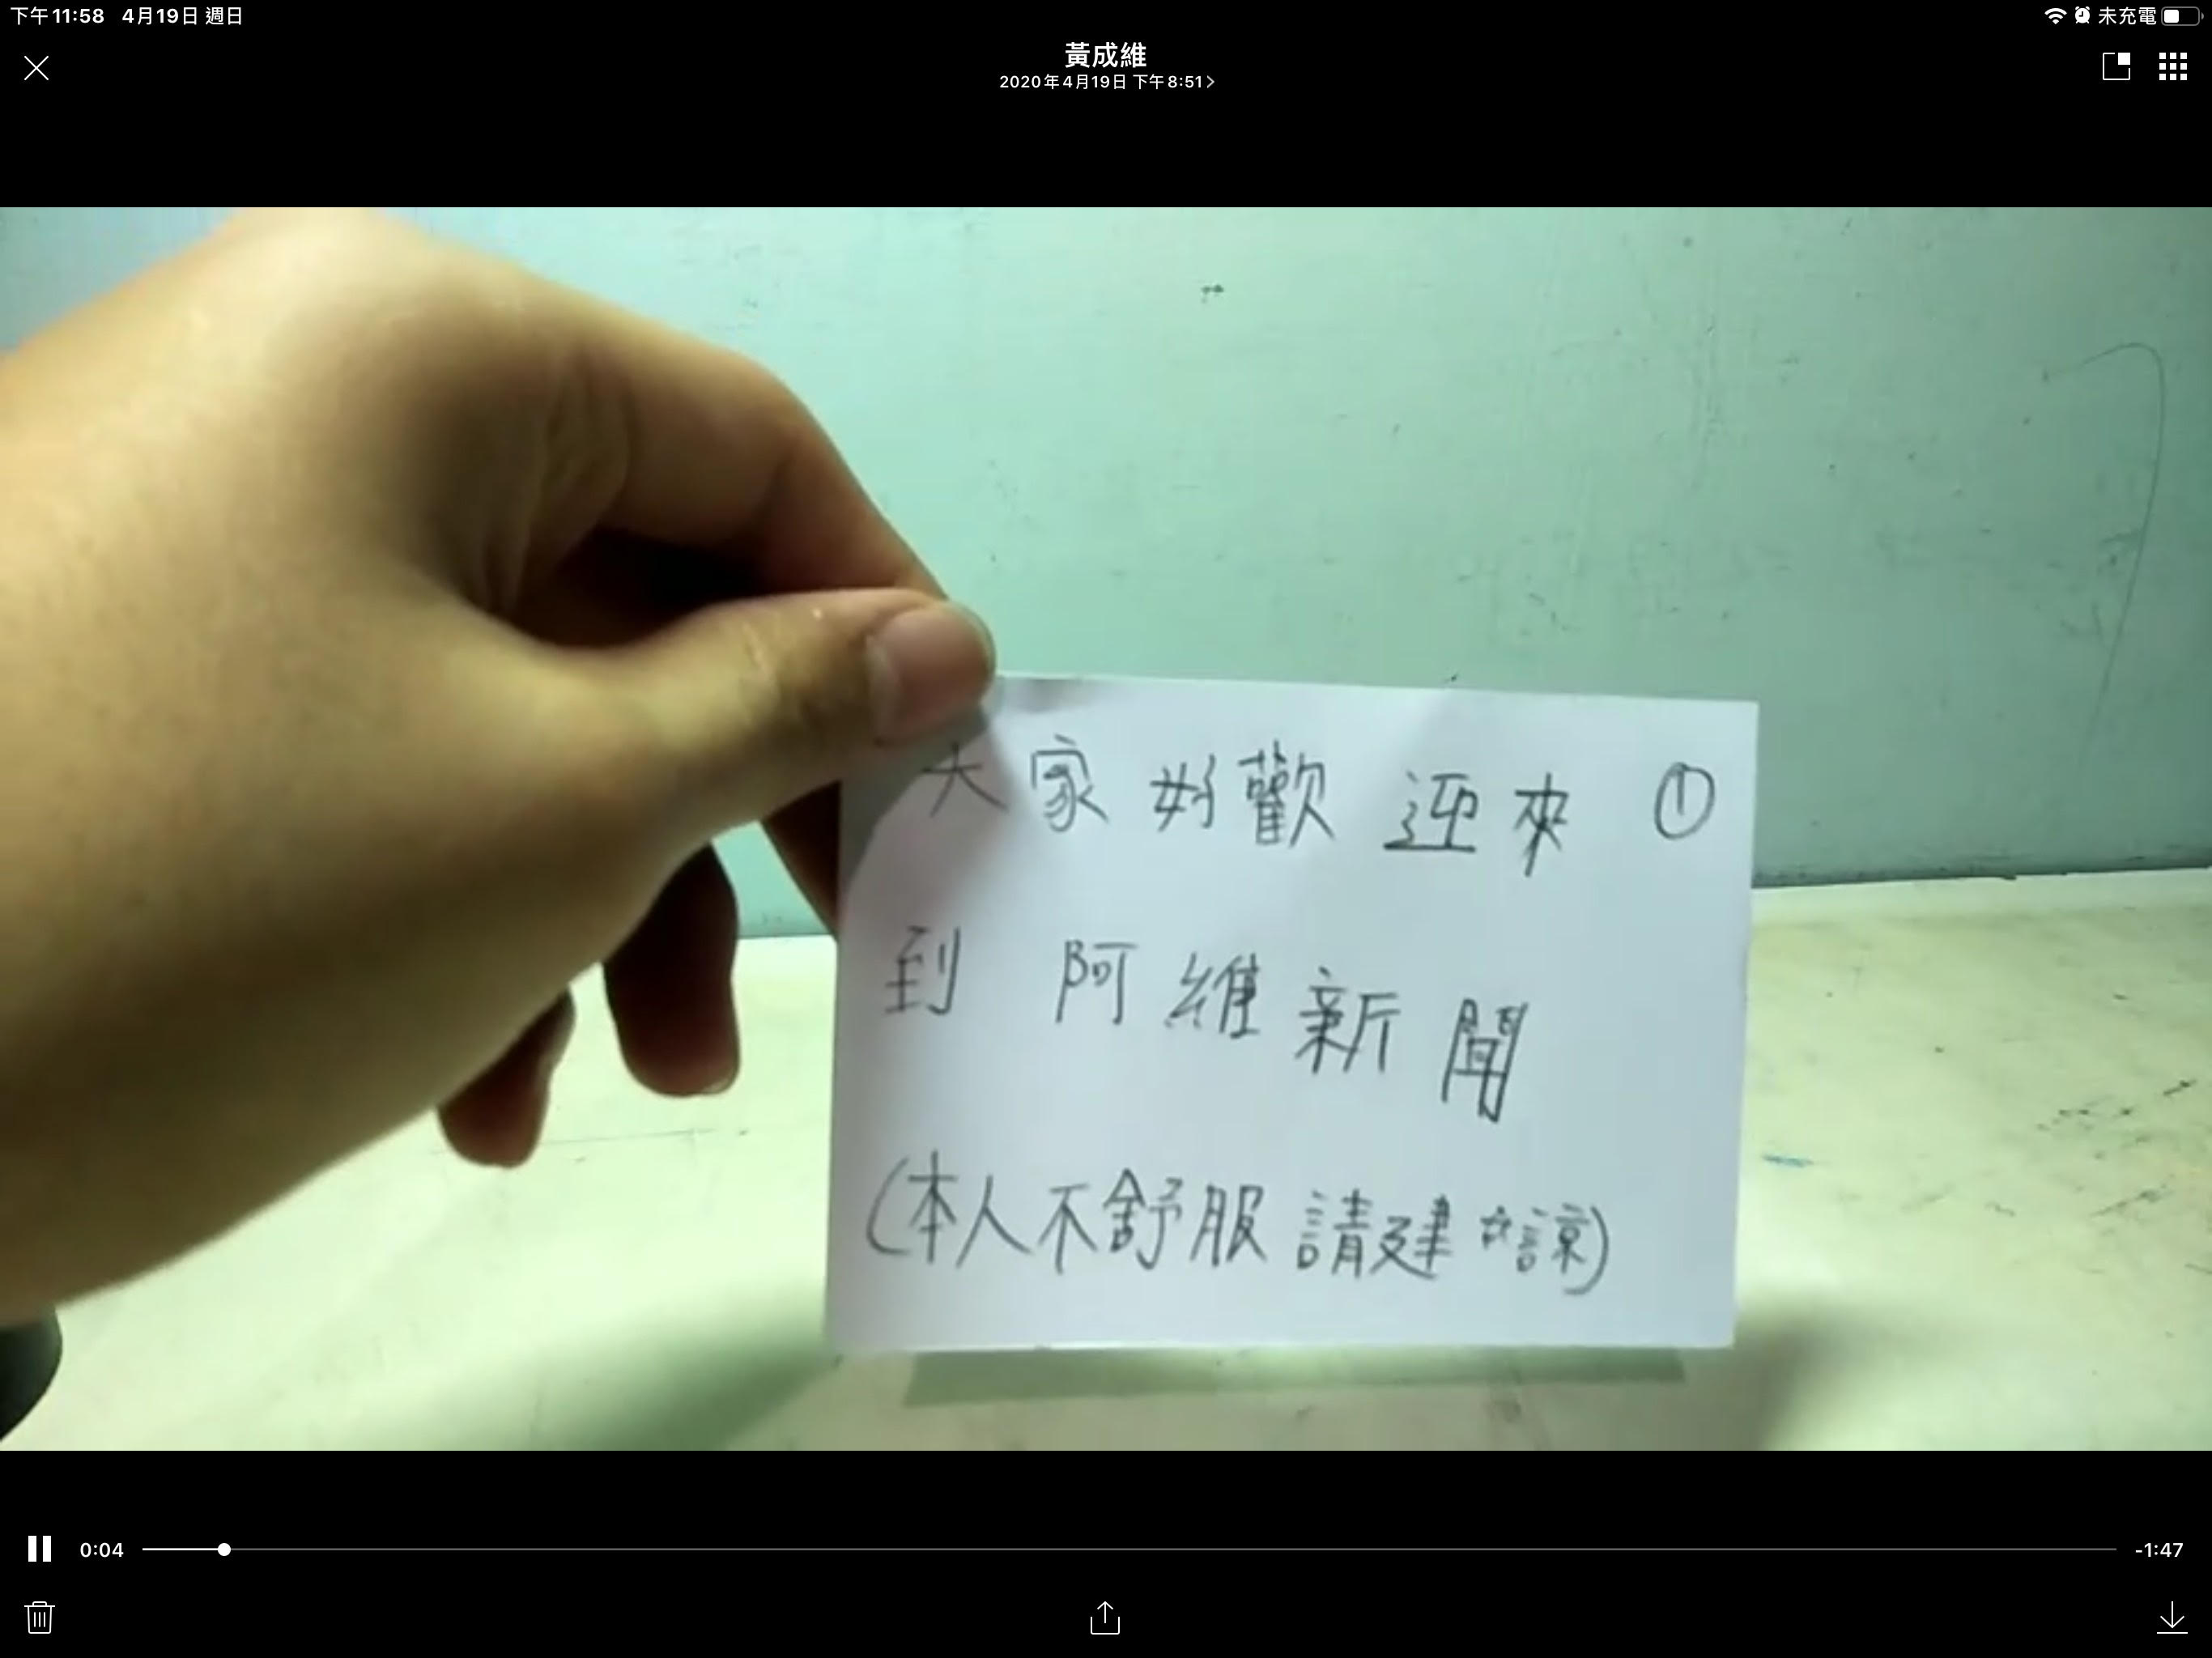 下午11:58 4月19日 週日
未充電
黃成維
2020年4月19日 下午8:51
大家好歡迎來 ①
到 阿維新聞
(本人不舒服請建諒)
0:04
-1:47